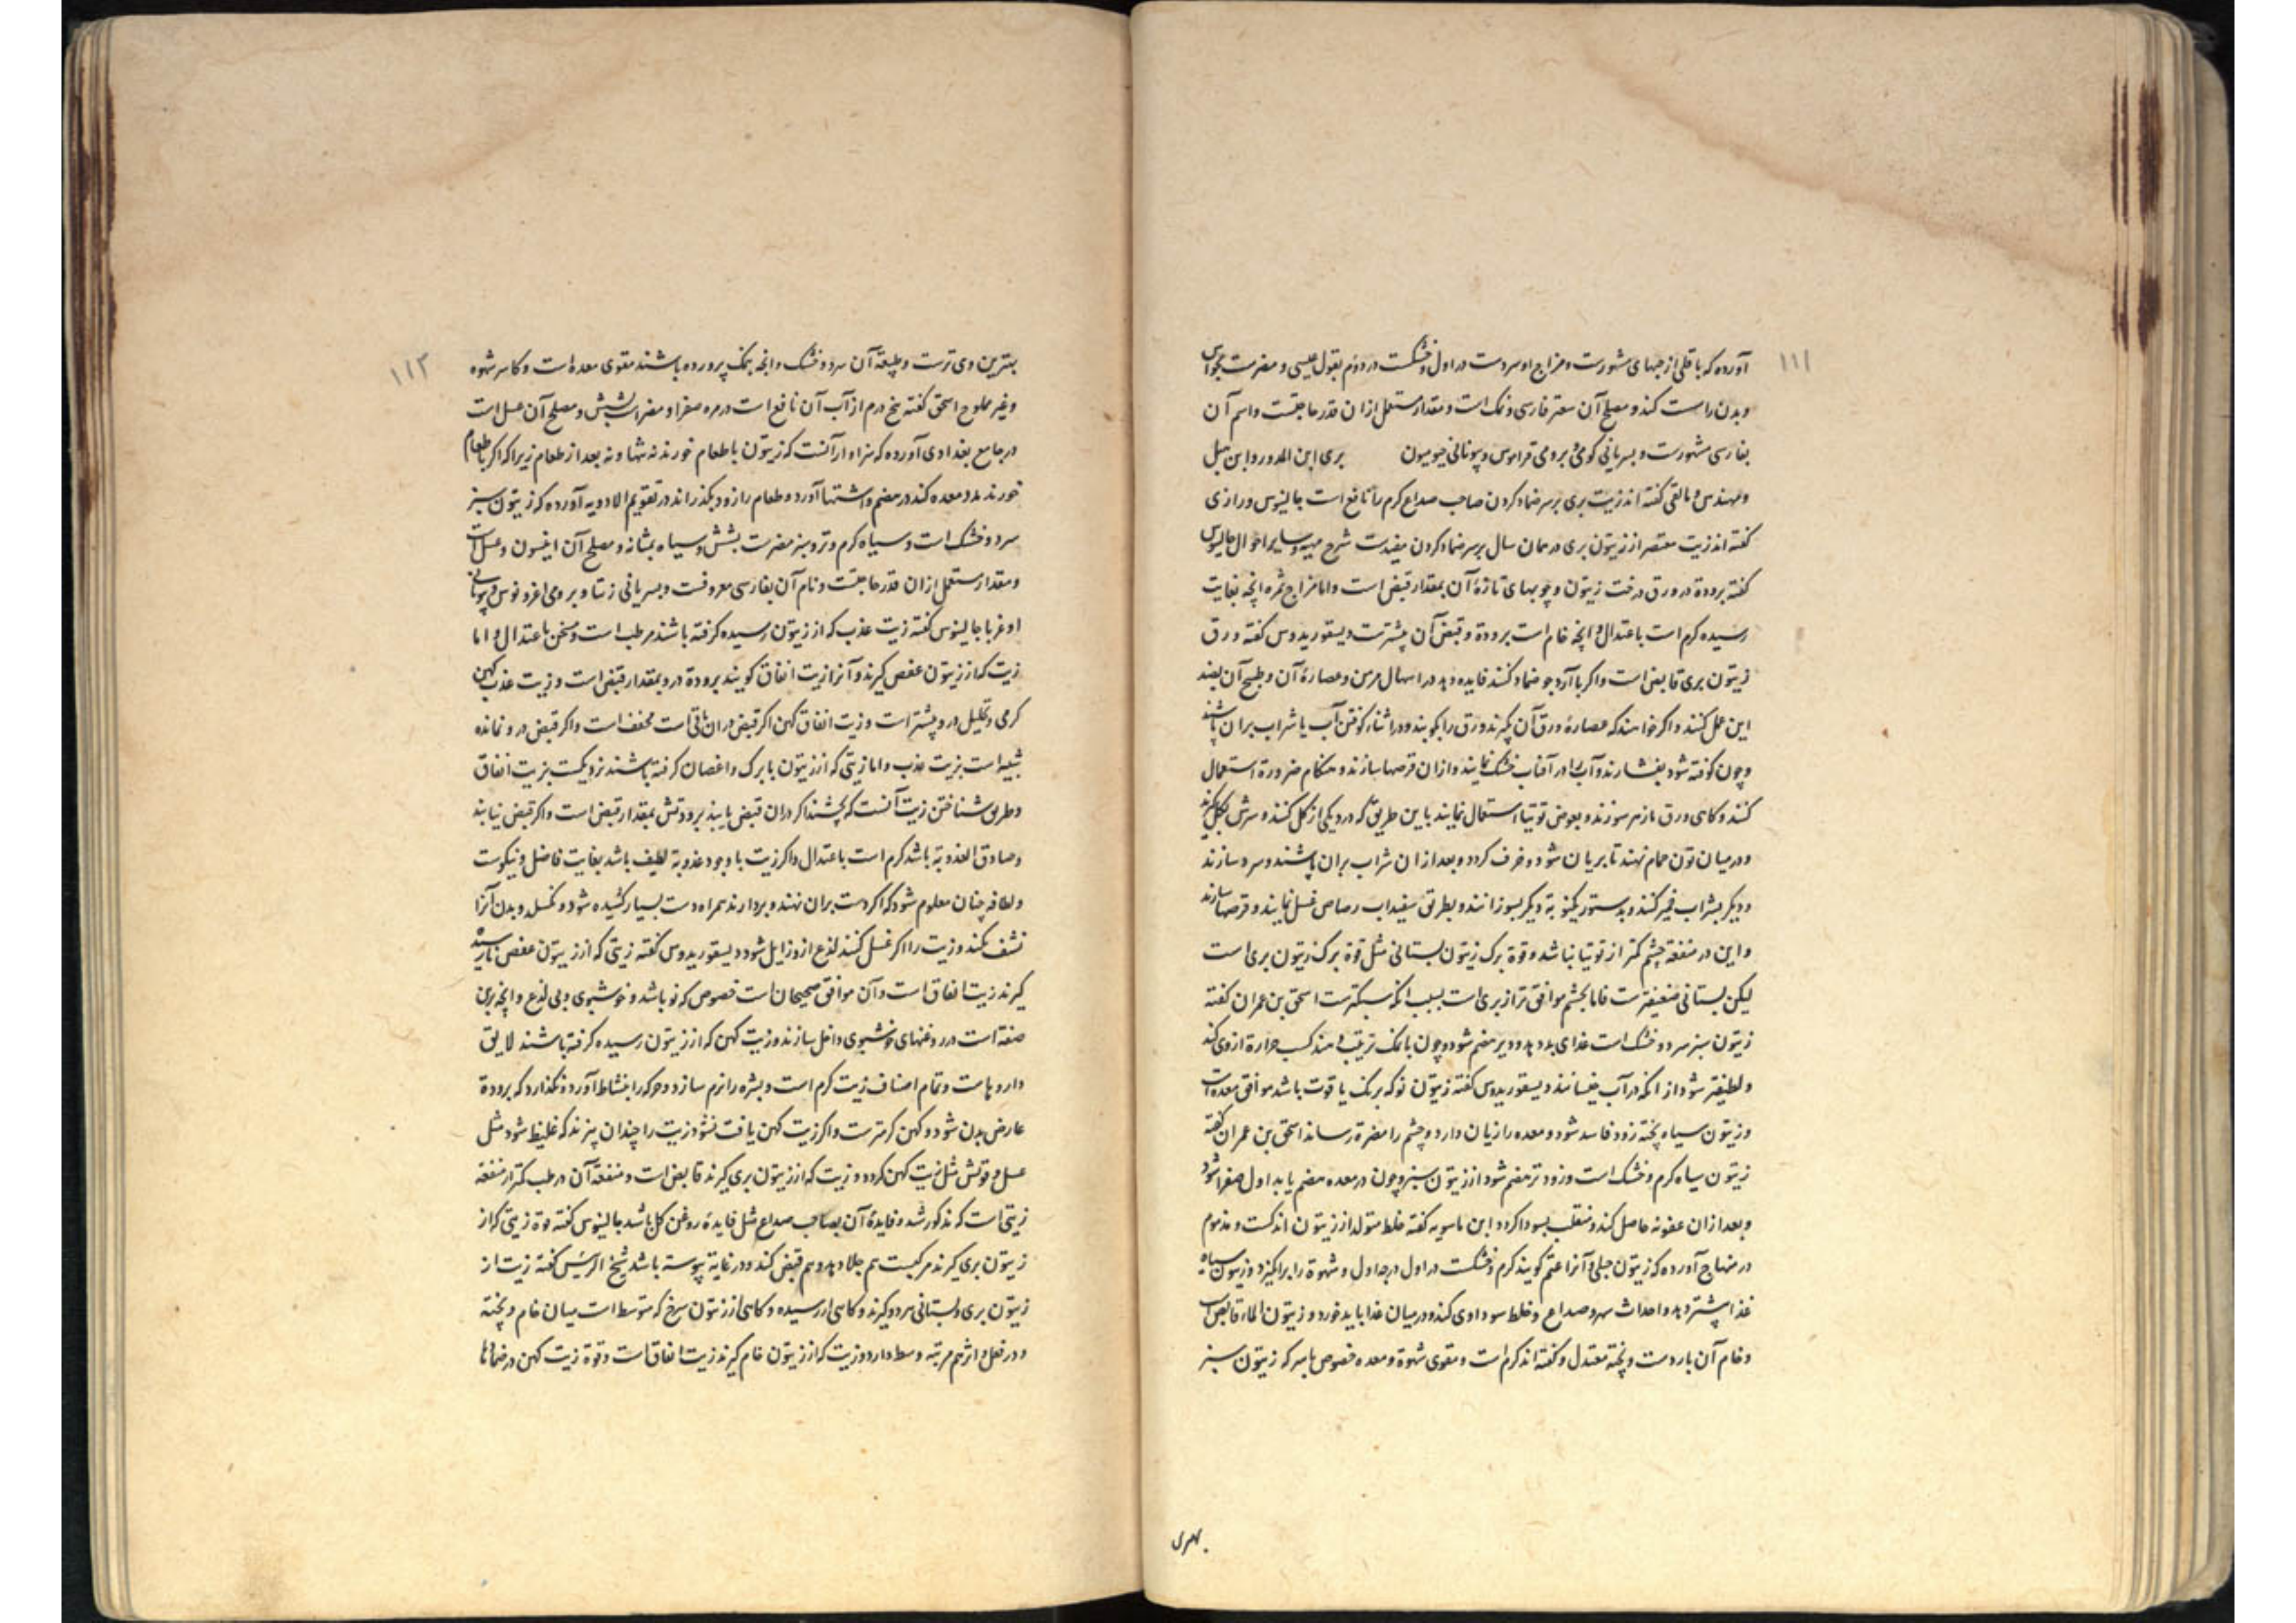 ١١١
آورده که باقلی از حبهای مشهورست و مزاج او سردست در اول و خشکست در دوم بقول عیسی و مضرست بحواس
و بدن راست کند و مصلح آن سعتر فارسی و نمک است و مقدار مستعمل ازان قدر حاجتست و اسم آن
بفارسی مشهورست و بسریانی و برومی و بیونانی بری ابن
و گفته اند زیت بری بر سر ضماد کردن صاحب صداع کرم را نافع است جالینوس و رازی
گفته اند زیت معتصر از زیتون بری در همان سال بر سر ضماد کردن مفیدست شرح و سایر احوال جالینوس
گفته برودة در ورق درخت زیتون و چوبهای تازۀ آن بمقدار قبض است و اما مزاج ثمره انچه بغایت
رسیده کرم است باعتدال و انچه خام است برودة و قبض آن بیشترست دیسقوریدوس گفته ورق
زیتون بری قابض است و اکر با آرد جو ضماد کنند فایده دهد در اسهال مزمن و عصارۀ آن و طبیخ آن بعینه
این عمل کنند و اکر خواهند که عصارۀ ورق آن بکیرند ورق را بکوبند و در اثناء کوفتن آب یا شراب بران پاشند
و چون کوفته شود بفشارند و آب را در آفتاب خشک نمایند و ازان قرصها سازند و هنکام ضرورة استعمال
کنند و کاهی ورق بسوزند و بعوض توتیا استعمال نمایند باین طریق که در دیکی از کل کنند و سرش بکل کیرند
و در میان تون حمام نهند تا بریان شود و خزف کردد و بعد ازان شراب بران پاشند و سرد سازند
و دیکر بشراب خمیر کنند و بدستور یکنوبة دیکر بسوزانند و بطریق سفیداب رصاص غسل نمایند و قرصها سازند
و این در منفعة چشم کمتر از توتیا نباشد و قوة برک زیتون بستانی مثل قوة برک زیتون بری است
لیکن بستانی ضعیفترست فاما بچشم موافق تر از بری است بسبب انکه سبکترست اسحق بن عمران گفته
زیتون سبز سرد و خشک است غذای بد دهد و دیر هضم شود و چون با نمک ترتیب دهند کسب حرارة از وی کند
و لطیفتر شود از انکه در آب خیسانند دیسقوریدوس گفته زیتون نو که برنک یاقوت باشد موافق معده است
و زیتون سیاه پخته زود فاسد شود و معده را زیان دارد و چشم را مضرة رساند اسحق بن عمران گفته
زیتون سیاه کرم و خشک است و زود تر هضم شود از زیتون سبز و چون در معده هضم یابد اول صفرا شود
و بعد ازان عفونه حاصل کند و منقلب بسودا کردد ابن ماسویه گفته خلط متولد از زیتون اندکست و مذموم
در منهاج آورده که زیتون جبلی و آنرا عتم کویند کرم و خشکست در اول درجه اول و شهوة را برانکیزد و زیتون سیاه
غذا بیشتر دهد و احداث سهر و صداع و خلط سوداوی کند و در میان غذا باید خورد و زیتون الماء قابض است
و خام آن باردست و پخته معتدل و گفته اند کرم است و مقوی شهوة و معده خصوص با سرکه زیتون سبز
بهترین
١١٢
بهترین وی ترست و طبیعة آن سرد و خشک و انچه بنمک پرورده باشند مقوی معده است و کاسر شهوه
و غیر مملوح اسحق گفته پنج درم از آب آن نافع است در مره صفرا و مضر است بشش و مصلح آن عسل است
در جامع بغدادی آورده که سزاوار آنست که زیتون با طعام خورند نه تنها و نه بعد از طعام زیرا که اکر با طعام
خورند مدد معده کند در هضم و اشتها آورد و طعام را زود بکذراند در تقویم الادویه آورده که زیتون سبز
سرد و خشک است و سیاه کرم و تر و سبز مضرست بشش و سیاه بمثانه و مصلح آن انیسون و عسل است
و مقدار مستعمل ازان قدر حاجتست و نام آن بفارسی معروفست و بسریانی زیتا و برومی و بیونانی
جالینوس گفته زیت عذب که از زیتون رسیده کرفته باشند مرطب است و مسخن باعتدال و اما
زیت که از زیتون عفص کیرند و آنرا زیت انفاق کویند برودة درو بمقدار قبض است و زیت عذب کهن
کرمی و تحلیل درو بیشتر است و زیت انفاق کهن اکر قبض دران باقی است مجفف است و اکر قبض درو نمانده
شبیه است بزیت عذب و اما زیتی که از زیتون با برک و اغصان کرفته باشند نزدیکست بزیت انفاق
و طریق شناختن زیت آنست که بچشند اکر دران قبض یابند برودتش بمقدار قبض است و اکر قبض نیابند
و صادق العذوبة باشد کرم است باعتدال و اکر زیت با وجود عذوبة لطیف باشد بغایت فاضل و نیکوست
و لطافة چنان معلوم شود که اکر دست بران نهند و بردارند همراه دست بسیار کشیده شود و نکسلد و بدن آنرا
نشف کند و زیت را اکر غسل کنند لذع ازو زایل شود دیسقوریدوس گفته زیتی که از زیتون عفص نارسیده
کیرند زیت انفاق است و آن موافق صحیحان است خصوص که نو باشد و خوشبوی و بی لذع و انچه برین
صفة است در روغنهای خوشبوی داخل سازند و زیت کهن که از زیتون رسیده کرفته باشند لایق
داروهاست و تمام اصناف زیت کرم است و بشره را نرم سازد و حرکه را بنشاط آورد و نکذارد که برودة
عارض بدن شود و کهن کرمترست و اکر زیت کهن یافت نشود زیت را چندان پزند که غلیظ شود مثل
عسل و قوتش مثل زیت کهن کردد و زیت که از زیتون بری کیرند قابض است و منفعة آن در طب کمتر از منفعة
زیتی است که مذکور شد و فایدۀ آن بصاحب صداع مثل فایدۀ روغن کل باشد جالینوس گفته قوة زیتی که از
زیتون بری کیرند مرکبست هم جلا دهد و هم قبض کند و در غایة یبوسة باشد شیخ الرئیس گفته زیت از
زیتون بری و بستانی هر دو کیرند و کاهی از رسیده و کاهی از زیتون سرخ که متوسط است میان خام و پخته
و در فعل و اثر هم مرتبه وسط دارد و زیت که از زیتون خام کیرند زیت انفاق است و قوة زیت کهن در ضمادها